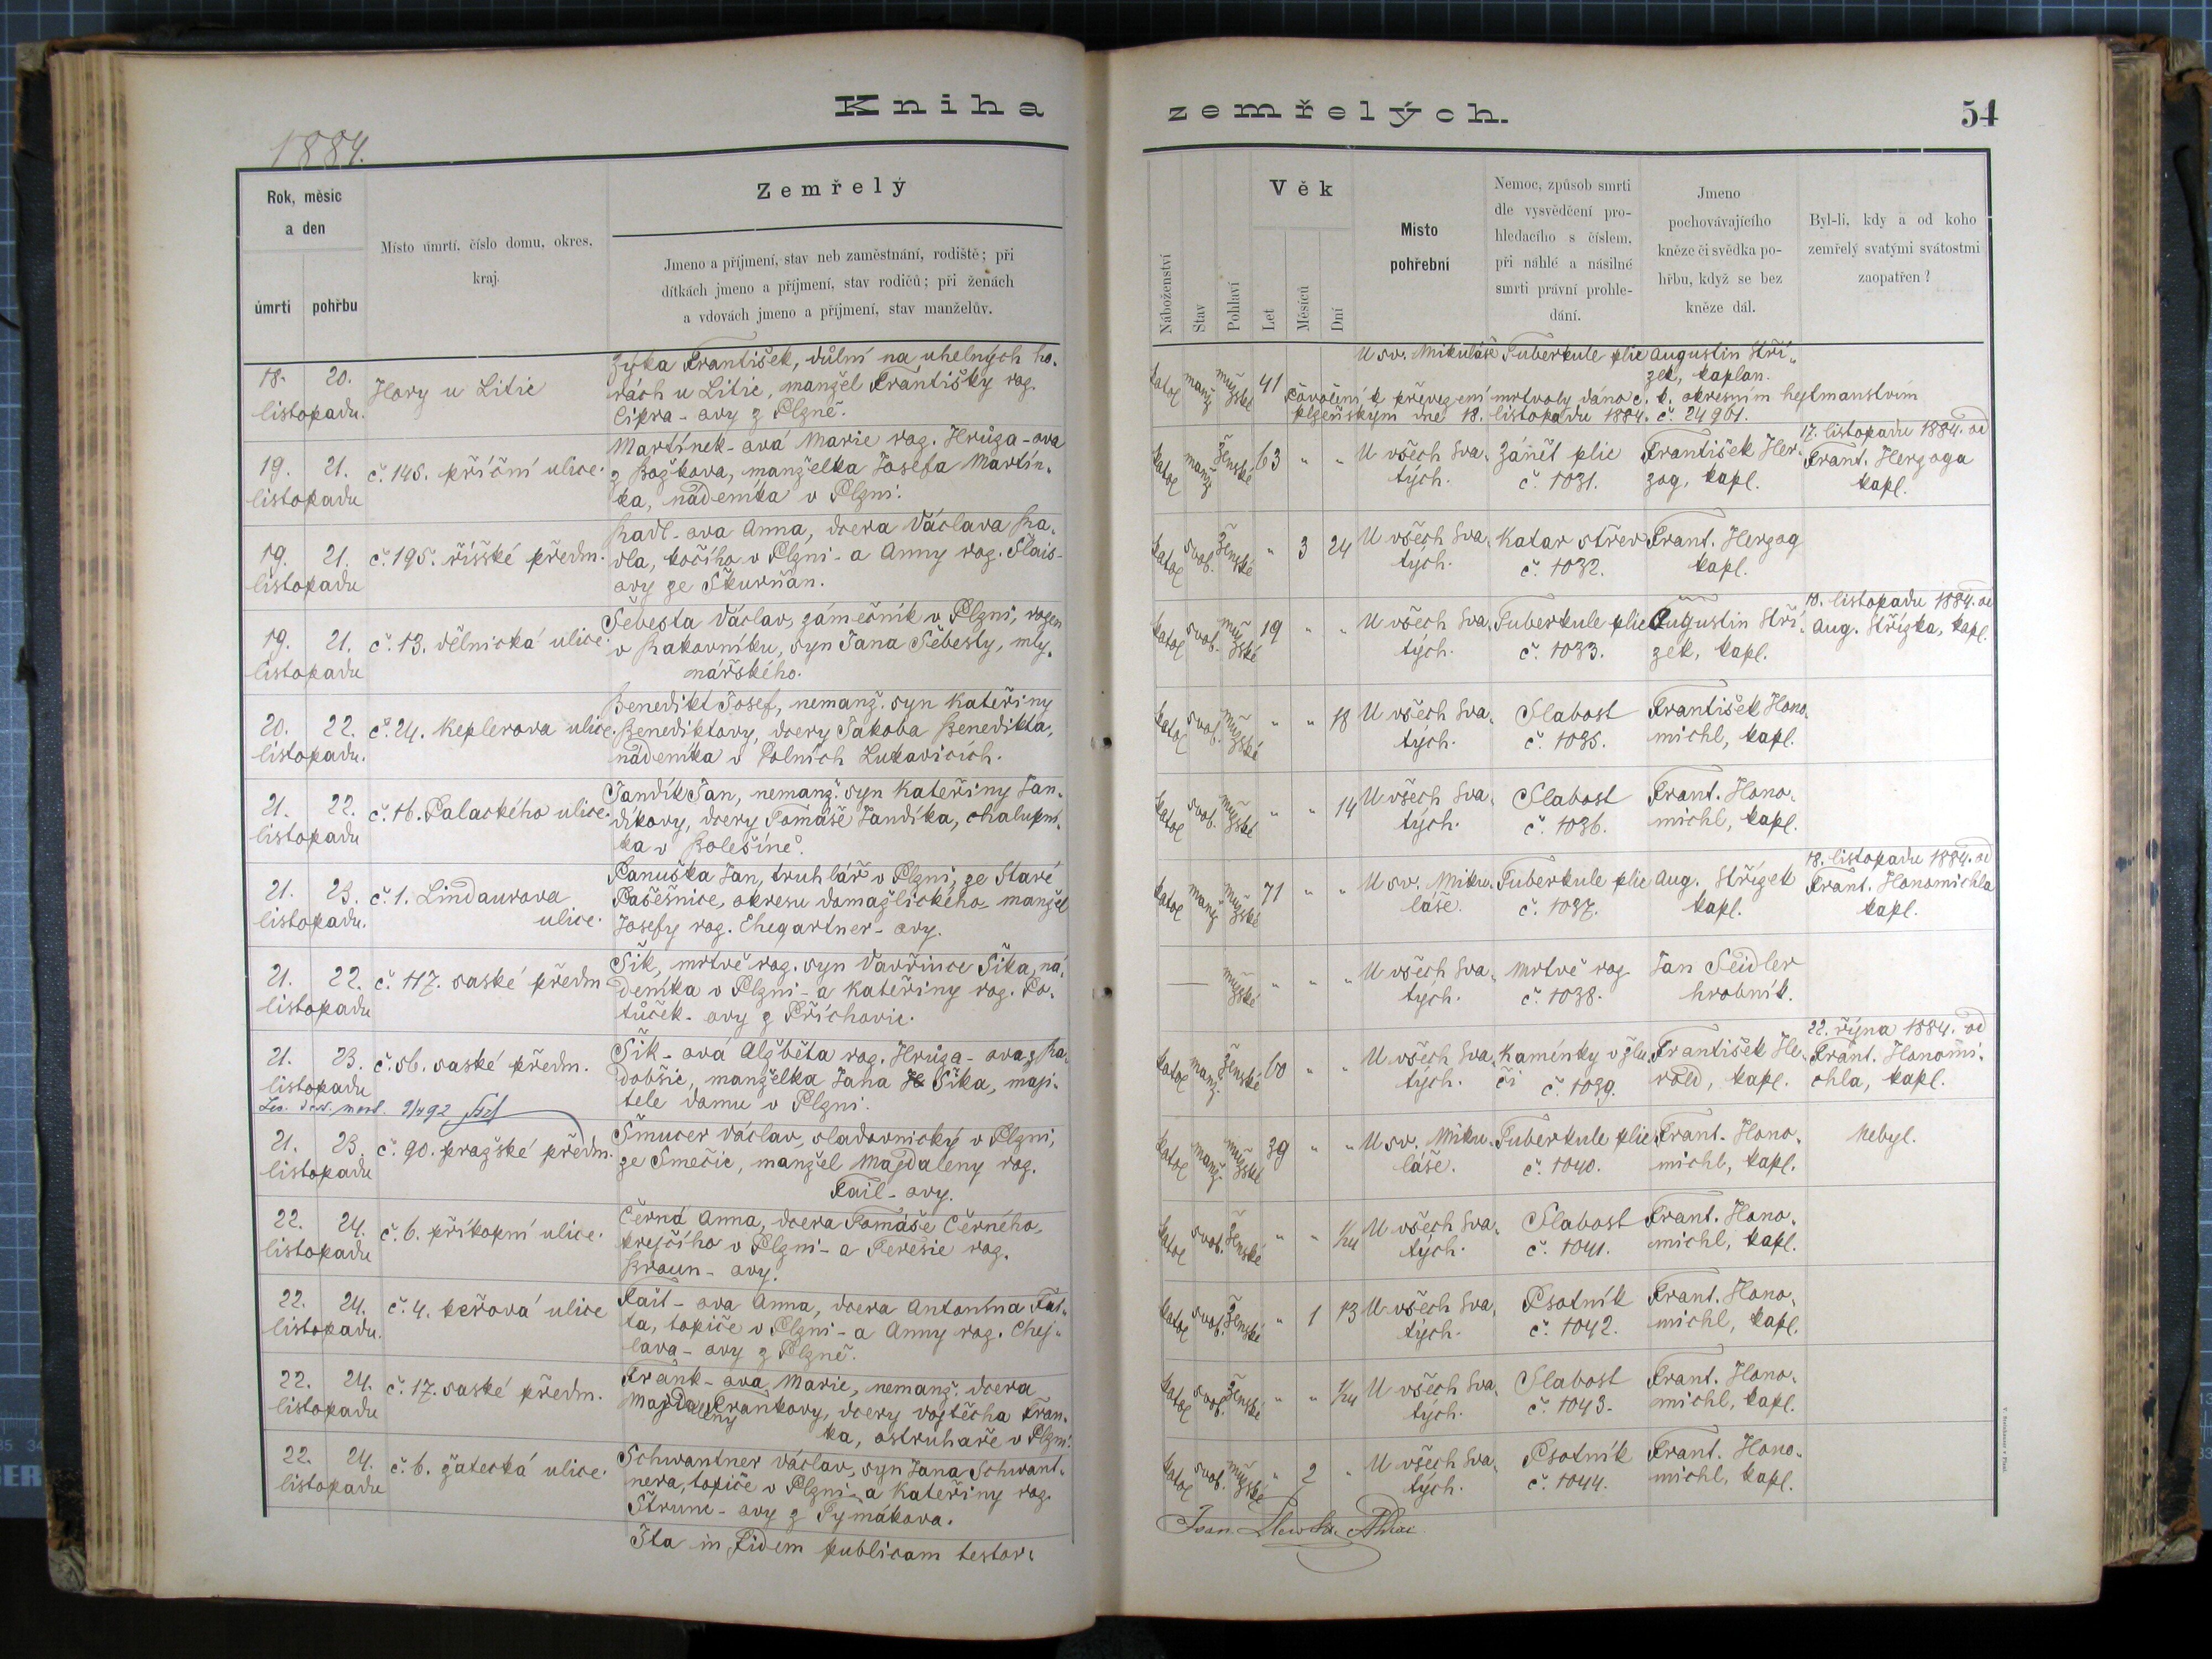 Kniha
zemřelých.
54
1884.
Rok, měsíc
a den
úmrtí
pohřbu
Místo úmrtí, číslo domu, okres,
kraj.
Zemřelý
Jmeno a příjmení, stav neb zaměstnání, rodiště; při
dítkách jmeno a příjmení, stav rodičů; při ženách
a vdovách jmeno a příjmení, stav manželův.
Náboženství
Stav
Pohlaví
Věk
Let
Měsíců
Dní
Místo
pohřební
Nemoc, způsob smrti
dle vysvědčení pro-
hledacího s číslem,
při náhlé a násilné
smrti právní prohle-
dání.
Jmeno
pochovávajícího
kněze či svědka po-
hřbu, když se bez
kněze dál.
Byl-li, kdy a od koho
zemřelý svatými svátostmi
zaopatřen?
18. 20.
listopadu.
Hory u Litic
Zýka František, důlní na uhelných ho-
rách u Litic, manžel Františky roz.
Cipra-ovy z Plzně.
katol manž mužské 41
U sv. Mikuláše
Tuberkule plic
Augustin Stří-
zek, kaplan.
Povolení k převezení mrtvoly dáno c. k. okresním hejtmanstvím
plzeňským dne 18. listopadu 1884. č. 24901.
19. 21.
listopadu
č. 145. příční ulice.
Martínek-ová Marie roz. Hrůza-ova
z Božkova, manželka Josefa Martín-
ka, nádeníka v Plzni.
katol manž ženské 63 " "
U všech Sva-
tých.
Zánět plic
č. 1031.
František Her-
zog, kapl.
17. listopadu 1884. od
Frant. Herzoga
kapl.
19. 21.
listopadu
č. 195. říšské předm.
Radl-ova Anna, dcera Václava Ra-
dla, kočího v Plzni - a Anny roz. Šlais-
ovy ze Skurňan.
katol svob. ženské " 3 24
U všech Sva-
tých.
Katar střev
č. 1032.
Frant. Herzog
kapl.
19. 21.
listopadu
č. 13. dělnická ulice.
Šebesta Václav, zámečník v Plzni, rozen
v Rakovníku, syn Jana Šebesty, mly-
nářského.
katol svob. mužské 19 " "
U všech Sva-
tých.
Tuberkule plic
č. 1033.
Augustin Stří-
zek, kapl.
10. listopadu 1884. od
Aug. Střízka, kapl.
20. 22.
listopadu.
č. 24. Keplerova ulice.
Benedikt Josef, nemanž. syn Kateřiny
Benediktovy, dcery Jakoba Benedikta,
nádeníka v Dolních Lukavicích.
katol svob. mužské " " 18
U všech Sva-
tých.
Slabost
č. 1035.
František Hono-
michl, kapl.
21. 22.
listopadu
č. 16. Palackého ulice.
Jandík Jan, nemanž. syn Kateřiny Jan-
díkovy, dcery Tomáše Jandíka, chalupní-
ka v Bolešíně.
katol svob. mužské " " 14
U všech Sva-
tých.
Slabost
č. 1036.
Frant. Hono-
michl, kapl.
21. 23.
listopadu.
č. 1. Lindaurova
ulice.
Panuška Jan, truhlář v Plzni, ze Staré
Pašešnice, okresu domažlického - manžel
Josefy roz. Ehegartner-ovy.
katol manž mužské 71 " "
U sv. Miku-
láše.
Tuberkule plic
č. 1037.
Aug. Střízek
kapl.
18. listopadu 1884. od
Frant. Honomichla
kapl.
21. 22.
listopadu
č. 117. saské předm
Šik, mrtvě roz. syn Vavřince Šika, ná-
deníka v Plzni - a Kateřiny roz. Po-
tůček-ovy z Příchovic.
— mužské " " "
U všech Sva-
tých.
Mrtvě roz
č. 1038.
Jan Seidler
hrobník.
21. 23.
listopadu
č. 56. saské předm.
Šik-ová Alžběta roz. Hrůza-ova z Ra-
dobšic, manželka Jana Šika, maji-
tele domu v Plzni.
katol manž. ženské 60 " "
U všech Sva-
tých.
Kamínky v žlu-
či č. 1039.
František He-
rold, kapl.
22. října 1884. od
Frant. Honomi-
chla, kapl.
21. 23.
listopadu
č. 90. pražské předm.
Šmucer Václav, sladovnický v Plzni,
ze Smečic, manžel Majdaleny roz.
Fail-ovy.
katol manž. mužské 39 " "
U sv. Miku-
láše.
Tuberkule plic
č. 1040.
Frant. Hono-
michl, kapl.
Nebyl.
22. 24.
listopadu
č. 6. příkopní ulice.
Černá Anna, dcera Tomáše Černého,
krejčího v Plzni - a Teresie roz.
Braun-ovy.
katol svob. ženské " " 1/24
U všech Sva-
tých.
Slabost
č. 1041.
Frant. Hono-
michl, kapl.
22. 24.
listopadu.
č. 4. keřová ulice
Fait-ova Anna, dcera Antonína Fai-
ta, topiče v Plzni - a Anny roz. Chej-
lava-ovy z Plzně.
katol svob. ženské " 1 13
U všech Sva-
tých.
Psotník
č. 1042.
Frant. Hono-
michl, kapl.
22. 24.
listopadu
č. 17. saské předm.
Frank-ova Marie, nemanž. dcera
Majdaleny Frankovy, dcery Vojtěcha Fran-
ka, ostruhaře v Plzni.
katol svob. ženské " " 1/24
U všech Sva-
tých.
Slabost
č. 1043.
Frant. Hono-
michl, kapl.
22. 24.
listopadu
č. 6. žatecká ulice.
Schwantner Václav, syn Jana Schwant-
nera, topiče v Plzni - a Kateřiny roz.
Štrunc-ovy z Tymákova.
katol svob. mužské " 2 "
U všech Sva-
tých.
Psotník
č. 1044.
Frant. Hono-
michl, kapl.
Ita in fidem publicam testor: